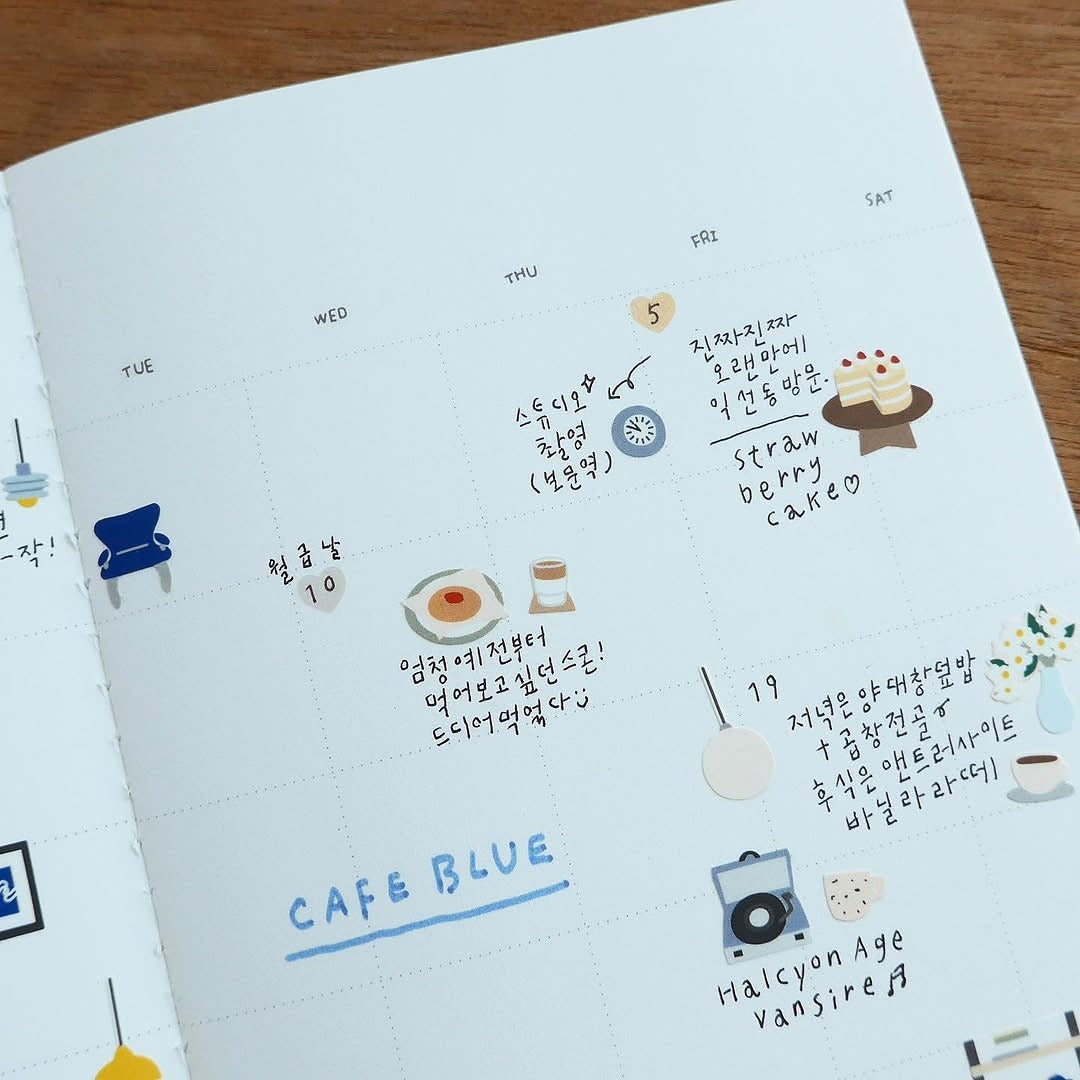 TUE
WED
THU
FRI
SAT
5
스튜디오
촬영
(보문역)
진짜진짜
오랜만에
익선동방문.
straw
berry
cake♡
작!
월급날
10
엄청예전부터
먹어보고싶던스콘!
드디어먹었다
19
저녁은양대창덮밥
+곱창전골
후식은앤트러사이트
바닐라라떼
CAFE BLUE
Halcyon Age
Vansire